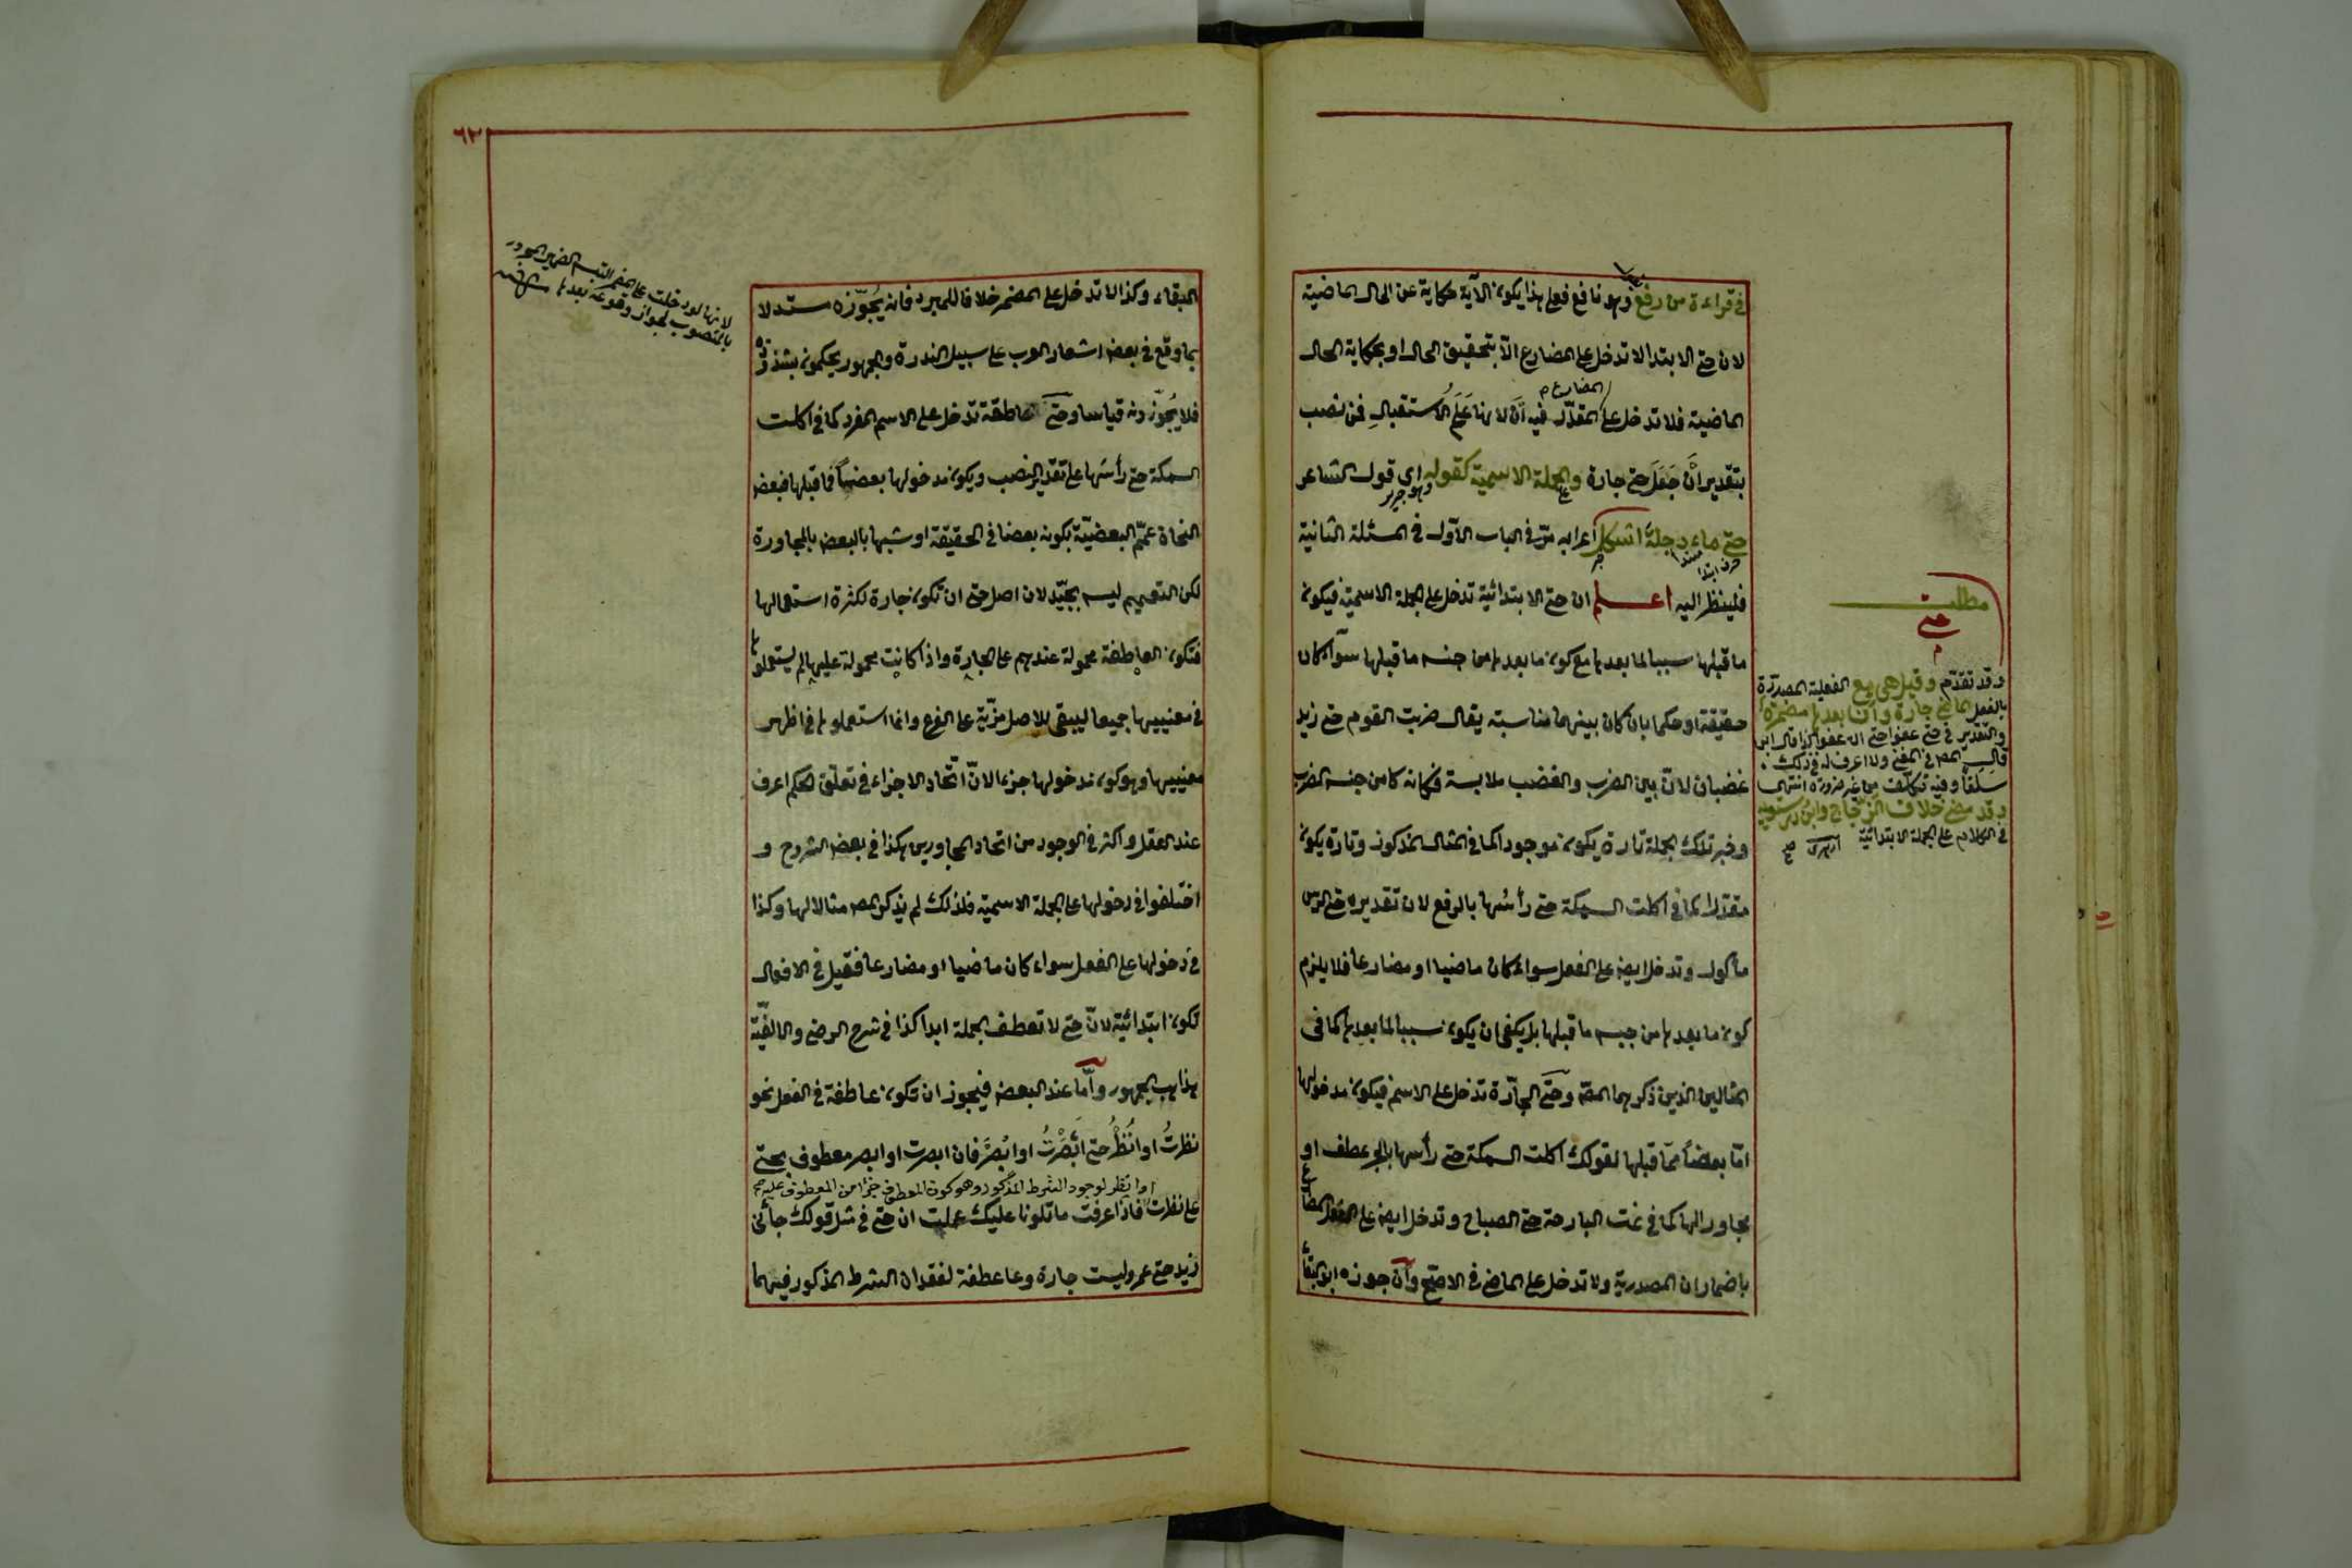 في قراءة من رفع وهو نافع فعلى هذا يكون الآية حكاية عن الحال الماضية
لان حتى الابتدا لا تدخل على المضارع الا بتحقيق الحال او بحكاية الحال
المضارع
الماضية فلا تدخل على المقدر فيه أن لانها علم الاستقبال فمن نصب
بتقدير أن جعل حتى جارة والجملة الاسمية كقوله اي قول الشاعر
وهو جرير
حتى ماء دجلة اشكل اعرابه مر في الباب الاول في المسئلة الثانية
حرف ابتدا مبتدا خبر
فلينظر اليه اعلم ان حتى الابتدائية تدخل على الجملة الاسمية فيكون
ما قبلها سببا لما بعدها مع كون ما بعدها من جنس ما قبلها سواء كان
حقيقة او حكما بان كان بينهما مناسبة يقال ضربت القوم حتى زيد
غضبان لان بين الضرب والغضب ملابسة فكانه كان من جنس الضرب
وخبر تلك الجملة تارة يكون موجودا كما في المثال المذكور وتارة يكون
مقدرا كما في اكلت السمكة حتى رأسها بالرفع لان تقديره حتى الرأس
مأكول وتدخل ايضا على الفعل سواء كان ماضيا او مضارعا فلا يلزم
كون ما بعدها من جنس ما قبلها بل يكفي ان يكون سببا لما بعدها كما في
المثالين الذين ذكرهما المص وحتى الجارة تدخل على الاسم فيكون مدخولها
اما بعضا مما قبلها لقولك اكلت السمكة حتى رأسها بالجر عطف او
مجاورا لها كما في نمت البارحة حتى الصباح وتدخل ايضا على الفعل المضارع
باضمار ان المصدرية ولا تدخل على الماضي في الاصح وان جوزه ابو البقاء
مطلب
حتى
وقد تقدم وقيل هي مع الفعلية المصدرة
بالفعل الماضي جارة وأن بعدها مضمرة
والتقدير في حتى عفوا حتى ان عفوا كذا قال ابن
قال المص في المغني ولا اعرف له في ذلك
سلفا وفيه تكلف من غير ضرورة انتهى
وقد مضى خلاف الزجاج وابن درستويه
في الكلام على الجملة الابتدائية
٦٢
لانها لو دخلت على المضمر التبس الضمير المجرور
بالمنصوب لجواز وقوعه بعدها
البقاء وكذا لا تدخل على المضمر خلافا للمبرد فانه يجوزه مستدلا
بما وقع في بعض اشعار العرب على سبيل الندرة والجمهور يحكمون بشذوذه
فلا يجوزونه قياسا وحتى العاطفة تدخل على الاسم المفرد كما في اكلت
السمكة حتى رأسها على تقدير النصب ويكون مدخولها بعضها مما قبلها فبعض
النحاة عمم البعضية بكونه بعضا في الحقيقة او شبها بالبعض بالمجاورة
لكن التعميم ليس بجيد لان اصل حتى ان تكون جارة لكثرة استعمالها
فتكون العاطفة محمولة عندهم على الجارة واذا كانت محمولة عليها لم يستعملوها
في معنييها جميعا ليبقى للاصل مزية على الفرع وانما استعملوها في اظهر
معنييها وهو كون مدخولها جزء لان اتحاد الاجزاء في تعلق الحكم اعرف
عند العقل واكثر في الوجود من اتحاد المجاورين هكذا في بعض الشروح و
اختلفوا في دخولها على الجملة الاسمية فلذلك لم يذكر المص مثالا لها وكذا
في دخولها على الفعل سواء كان ماضيا او مضارعا فقيل في الافعال
تكون ابتدائية لان حتى لا تعطف الجملة ابدا كذا في شرح الرضي والالفية
هذا مذهب الجمهور وأما عند البعض فيجوز ان تكون عاطفة في الفعل نحو
نظرت او انظر حتى ابصرت او ابصر فان ابصرت او ابصر معطوف بحتى
او انظر لوجود الشرط المذكور وهو كون المعطوف جزأ من المعطوف عليه صح
على نظرت فاذا عرفت ما تلونا عليك علمت ان حتى في مثل قولك جائني
زيد حتى عمرو ليست جارة ولا عاطفة لفقدان الشرط المذكور فيهما